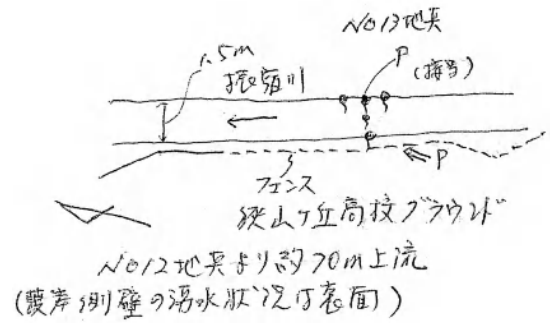 No13地点
P
(接写)
1.5m
川
P
フェンス
狭山ヶ丘高校グラウンド
No12地点より約70m上流
(護岸側壁の湧水状況は裏面)